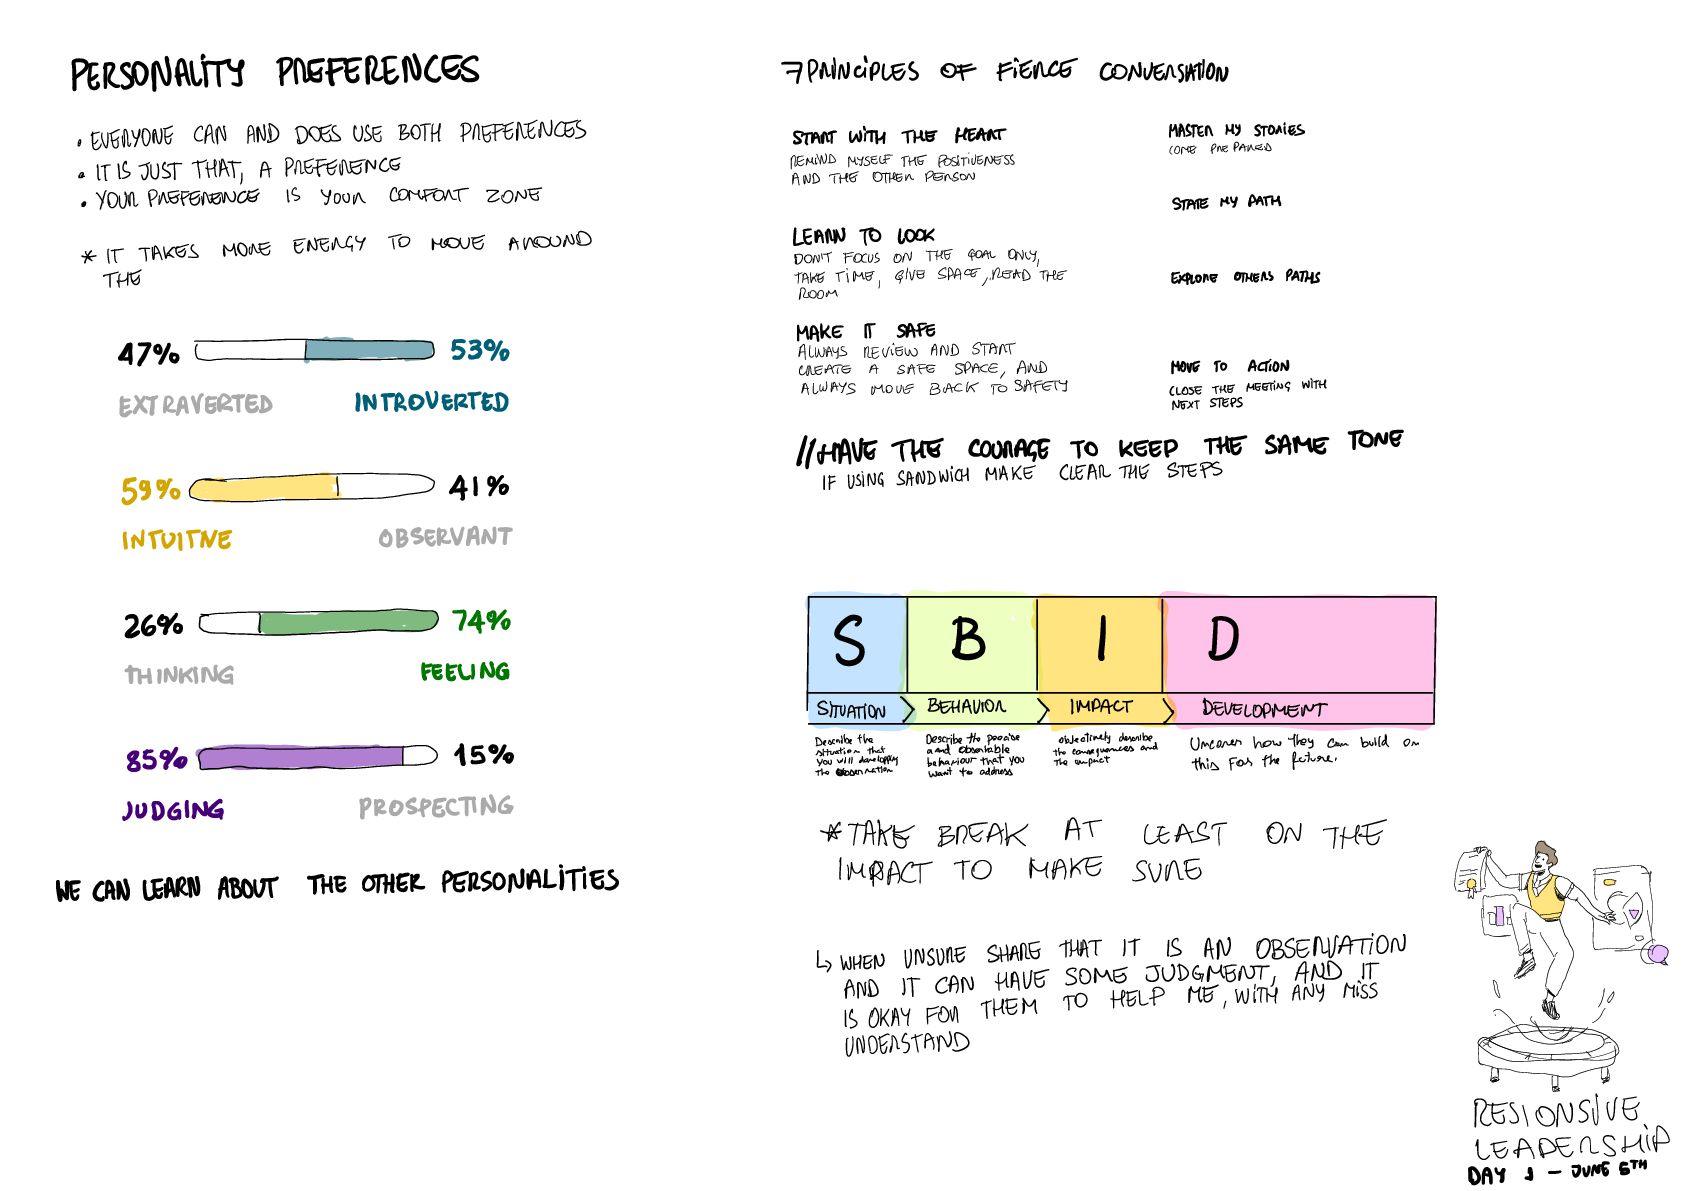 PERSONALITY PREFERENCES
• EVERYONE CAN AND DOES USE BOTH PREFERENCES
• IT IS JUST THAT, A PREFERENCE
• YOUR PREFERENCE IS YOUR COMFORT ZONE
* IT TAKES MORE ENERGY TO MOVE AROUND
THE
47% 53%
EXTRAVERTED INTROVERTED
59% 41%
INTUITIVE OBSERVANT
26% 74%
THINKING FEELING
85% 15%
JUDGING PROSPECTING
WE CAN LEARN ABOUT THE OTHER PERSONALITIES
7 PRINCIPLES OF FIERCE CONVERSATION
START WITH THE HEART
REMIND MYSELF THE POSITIVENESS
AND THE OTHER PERSON
LEARN TO LOOK
DON'T FOCUS ON THE GOAL ONLY,
TAKE TIME, GIVE SPACE, READ THE
ROOM
MAKE IT SAFE
ALWAYS REVIEW AND START
CREATE A SAFE SPACE, AND
ALWAYS MOVE BACK TO SAFETY
MASTER MY STORIES
COME PREPARED
STATE MY PATH
EXPLORE OTHERS PATHS
MOVE TO ACTION
CLOSE THE MEETING WITH
NEXT STEPS
//HAVE THE COURAGE TO KEEP THE SAME TONE
IF USING SANDWICH MAKE CLEAR THE STEPS
S B I D
SITUATION BEHAVIOR IMPACT DEVELOPMENT
Describe the
situation that
you will developping
the observation
Describe the precise
and observable
behaviour that you
want to address
Objectively describe
the consequences and
the impact
Uncover how they can build on
this for the future.
* TAKE BREAK AT LEAST ON THE
IMPACT TO MAKE SURE
↳ WHEN UNSURE SHARE THAT IT IS AN OBSERVATION
AND IT CAN HAVE SOME JUDGMENT, AND IT
IS OKAY FOR THEM TO HELP ME, WITH ANY MISS
UNDERSTAND
RESPONSIVE
LEADERSHIP
DAY 1 — JUNE 5TH